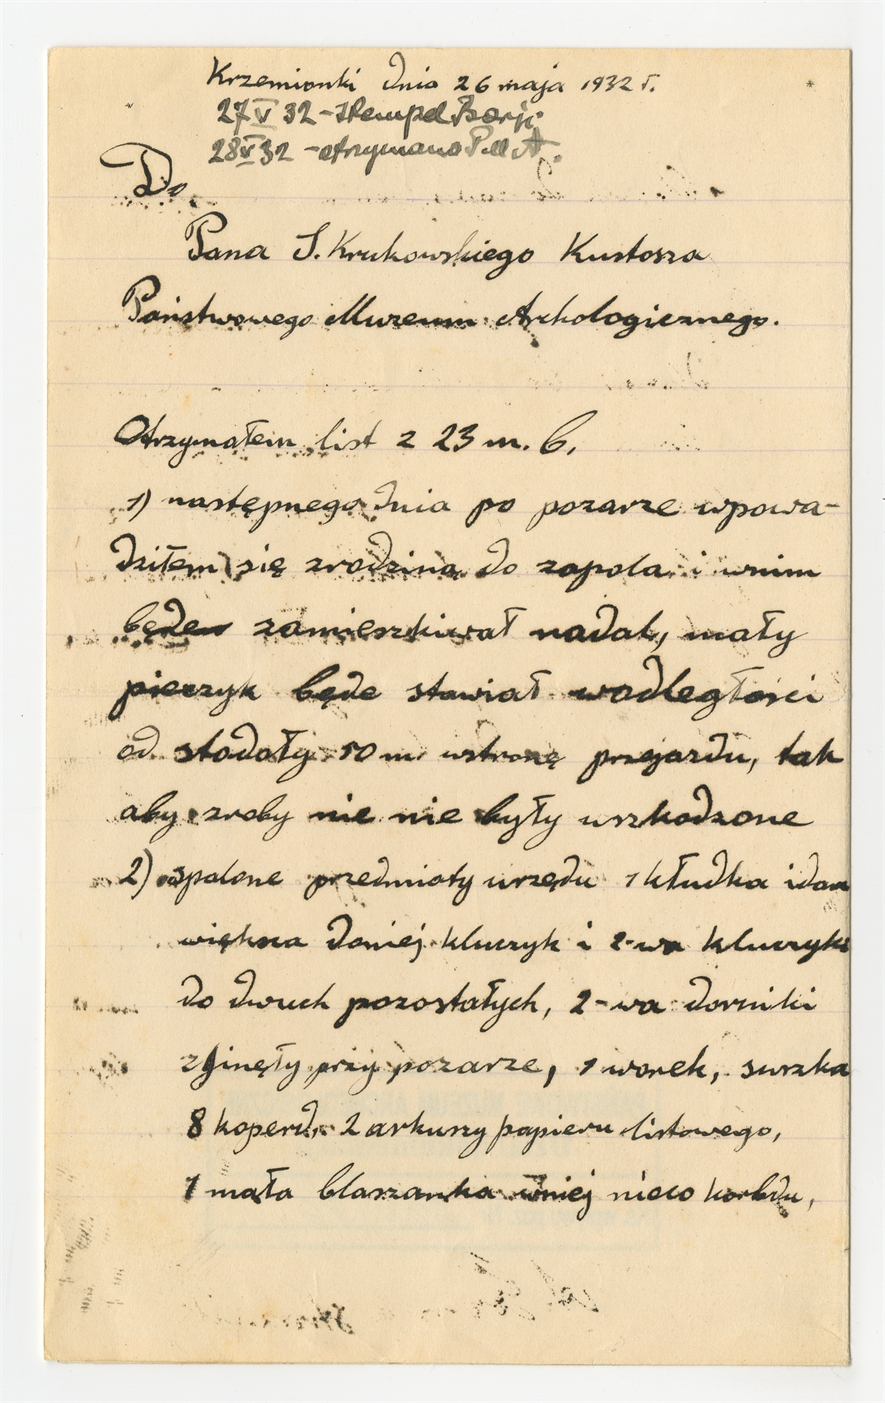 Krzemionki dnia 26 maja 1932 r.
27 V 32 - Stempel
28 V 32 - otrzymano P.M.A.
Do
Pana S. Krukowskiego Kustosza
Państwowego Muzeum Arhologicznego.
Otrzymałem list z 23 m. b.
1) następnego dnia po pozarze wpowa-
dziłem się zrodziną do zapola i wnim
będe zamieszkiwał nadal, mały
pieczyk będe stawiał wodległości
od stodoły 50 m wstronę przejazdu, tak
aby zroby nie nie były uszkodzone
2) spalone przedmioty urzędu 1 kłudka
większa doniej kluczyk i 2-wa kluczyki
do dwuch pozostałych, 2-wa dorniki
zginęły przy pozarze, 1 worek, suszka
8 koperd, 2 arkuszy papieru listowego,
1 mała blaszanka wniej nieco korbdu,